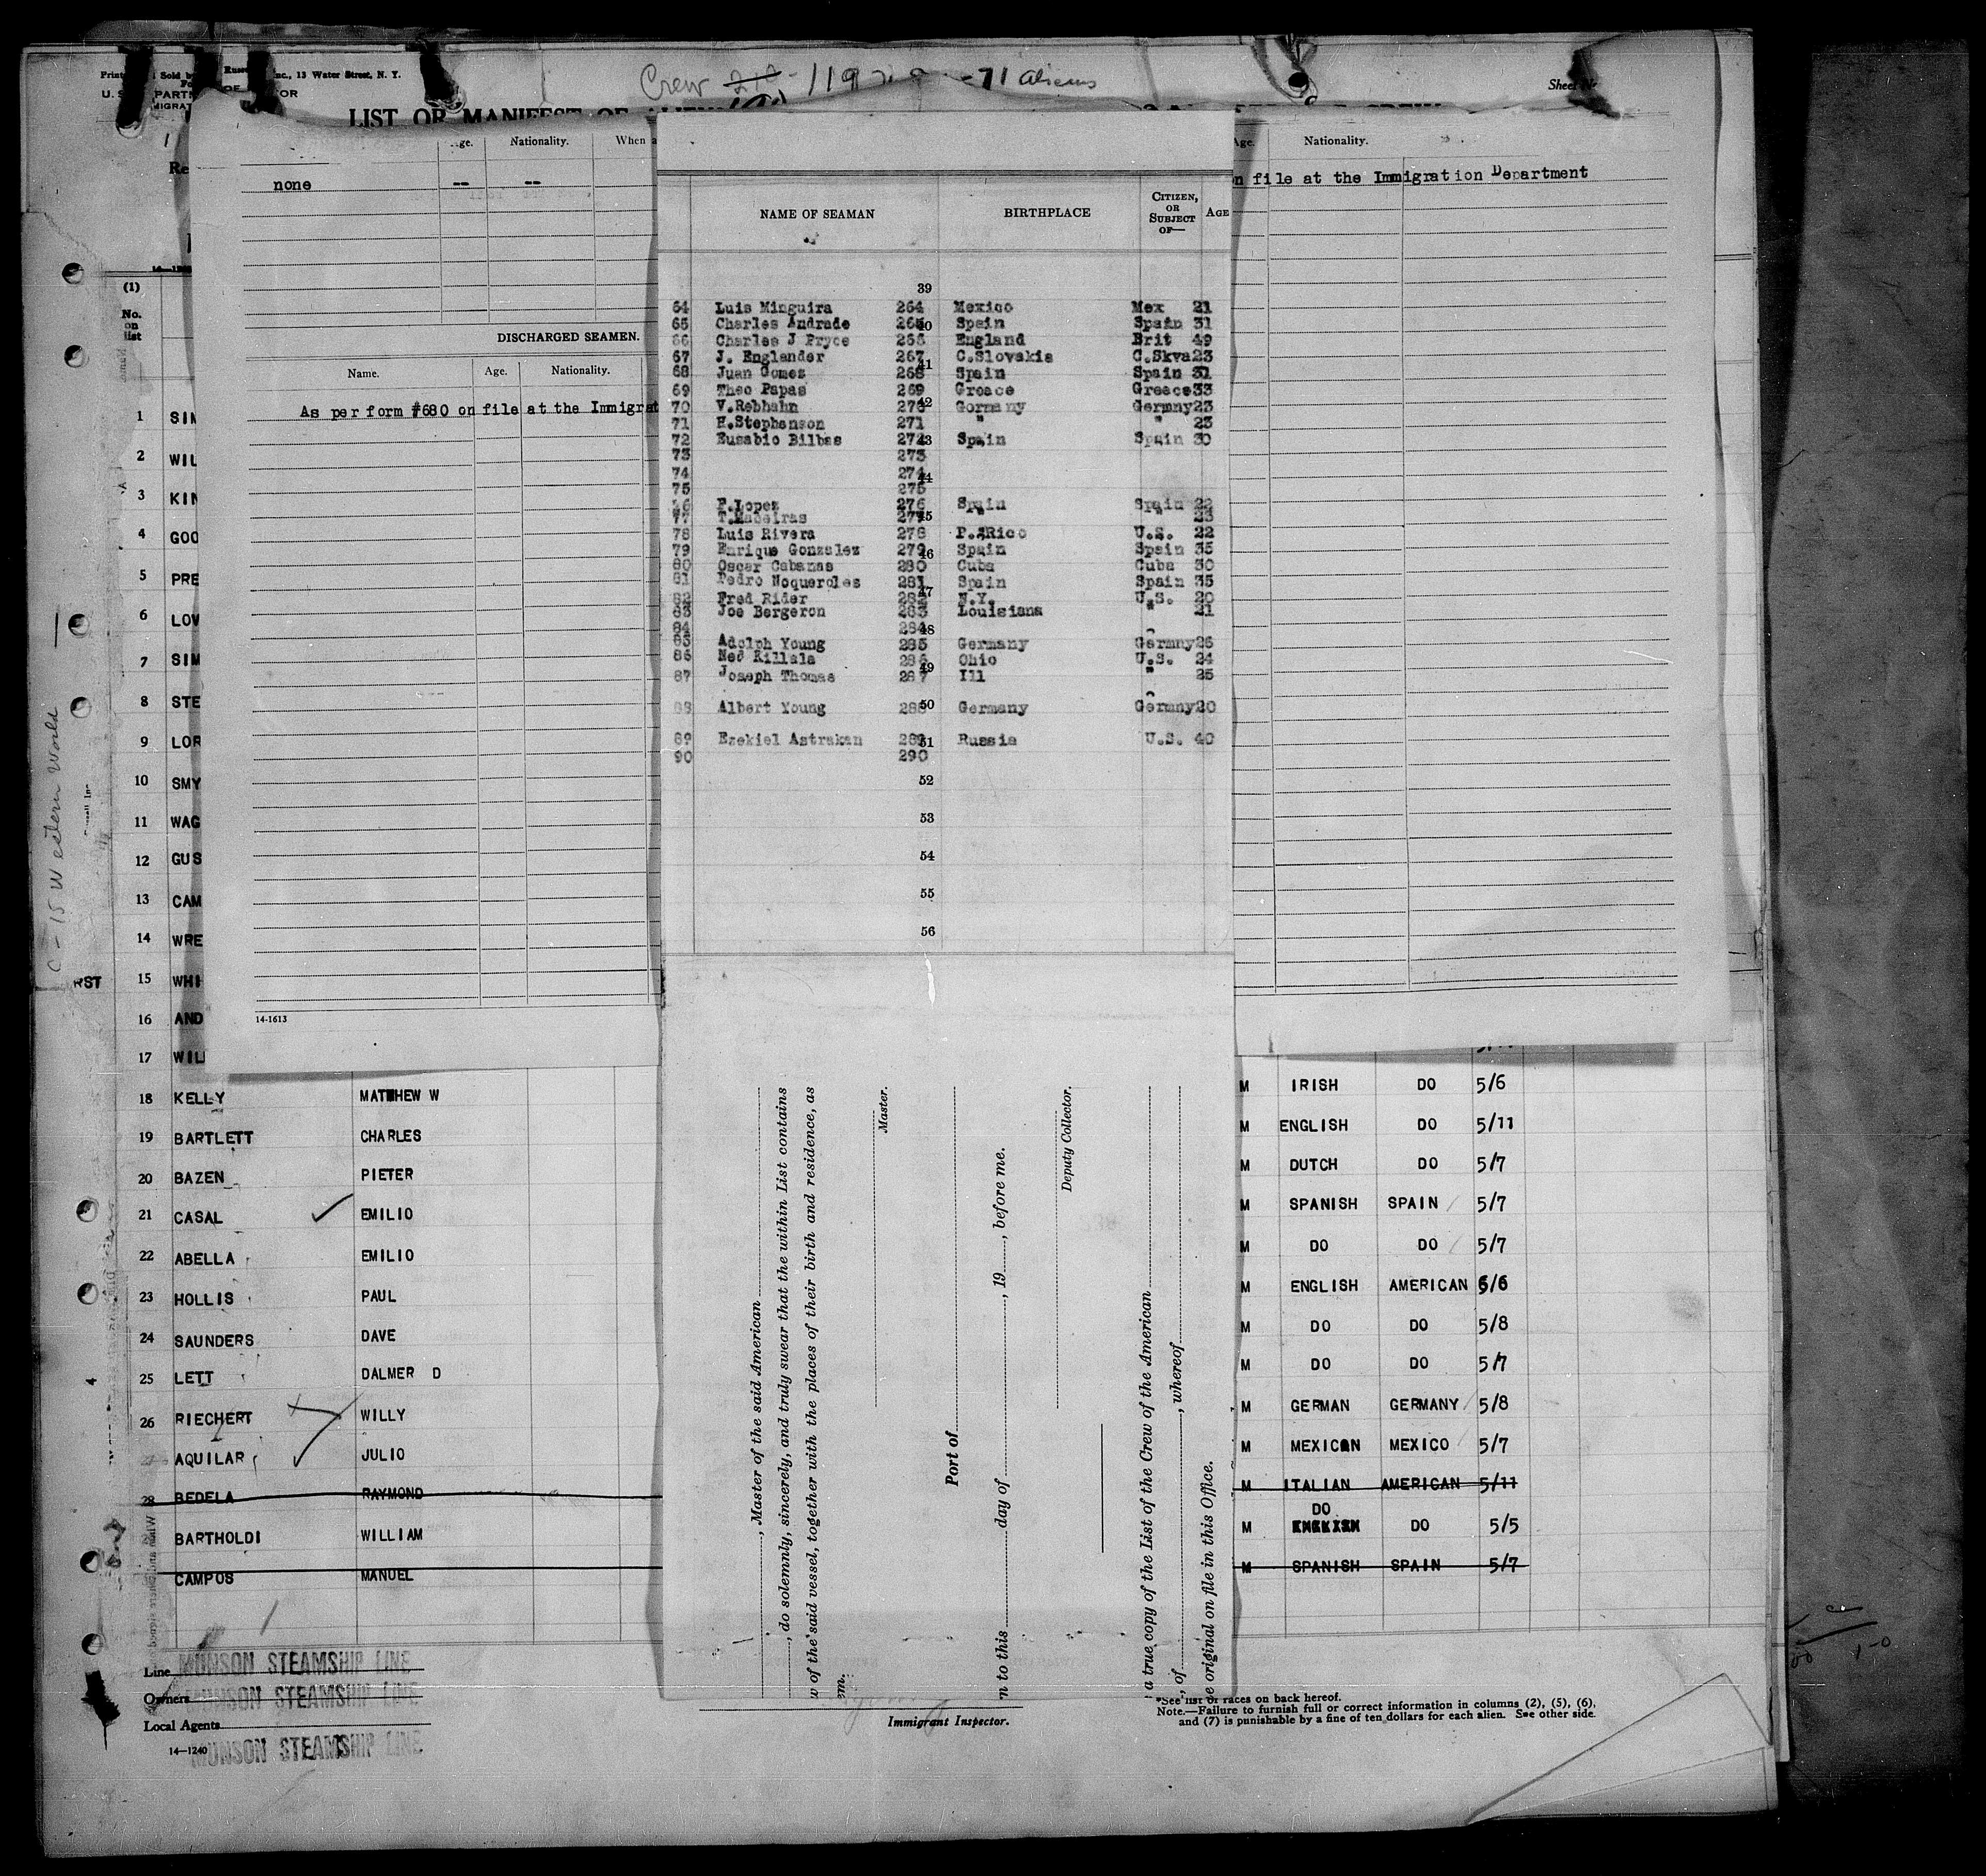 Crew 119 71 aliens
Sold by Inc., 13 Water Street, N. Y.
Sheet Nr
LIST OR MANIFEST OF
Nationality. When
none -- --
DISCHARGED SEAMEN.
Name. Age. Nationality.
As per form #680 on file at the Immigrat
14-1613
Age. Nationality.
on file at the Immigration Department
NAME OF SEAMAN BIRTHPLACE CITIZEN, OR SUBJECT OF— AGE
39
64 Luis Minguira 264 Mexico Mex 21
65 Charles Andrade 265 40 Spain Spain 31
66 Charles J Pryce 266 England Brit 49
67 J. Englander 267 41 C.Slovakia C.Skva 23
68 Juan Gomez 268 Spain Spain 31
69 Theo Papas 269 Greece Greece 33
70 V.Rebhahn 270 42 Germany Germny 23
71 H.Stephenson 271 " " 23
72 Eusabio Bilbas 272 43 Spain Spain 30
73 273
74 274 44
75 275
76 F.Lopez 276 Spain Spain 22
77 T.Mabeiras 277 45 " 23
78 Luis Rivera 278 P. Rico U.S. 22
79 Enrique Gonzalez 279 46 Spain Spain 35
80 Oscar Cabanas 280 Cuba Cuba 30
81 Pedro Noqueroles 281 Spain Spain 35
82 Fred Rider 282 47 N.Y. U.S. 20
83 Joe Bergeron 283 Louisiana " 21
84 284 48
85 Adolph Young 285 Germany Germny 26
86 Ned Killala 286 49 Ohio U.S. 24
87 Joseph Thomas 287 Ill " 25
88 Albert Young 288 50 Germany Germny 20
89 Ezekiel Astrakan 289 51 Russia U.S. 40
90 290
52
53
54
55
56
, Master of the said American
, do solemnly, sincerely, and truly swear that the within List contains
w of the said vessel, together with the places of their birth and residence, as
em.
Master.
Port of
n to this day of , 19 , before me.
Deputy Collector.
a true copy of the List of the Crew of the American
, of , whereof
e original on file in this Office.
(1)
No. on list
1 SIM
2 WIL
3 KIN
4 GOO
5 PRE
6 LOV
7 SIM
8 STE
9 LOR
10 SMY
11 WAG
12 GUS
13 CAM
14 WRE
15 WHI
16 AND
17 WIL
18 KELLY MATTHEW W M IRISH DO 5/6
19 BARTLETT CHARLES M ENGLISH DO 5/11
20 BAZEN PIETER M DUTCH DO 5/7
21 CASAL EMILIO M SPANISH SPAIN 5/7
22 ABELLA EMILIO M DO DO 5/7
23 HOLLIS PAUL M ENGLISH AMERICAN 5/6
24 SAUNDERS DAVE M DO DO 5/8
25 LETT DALMER D M DO DO 5/7
26 RIECHERT WILLY M GERMAN GERMANY 5/8
27 AQUILAR JULIO M MEXICAN MEXICO 5/7
28 BEDELA RAYMOND M ITALIAN AMERICAN 5/11
BARTHOLDI WILLIAM M DO DO 5/5
CAMPOS MANUEL M SPANISH SPAIN 5/7
C - 15 Western World
Line MUNSON STEAMSHIP LINE
Owners MUNSON STEAMSHIP LINE
Local Agents MUNSON STEAMSHIP LINE
14—1240
Immigrant Inspector.
*See list of races on back hereof.
Note.—Failure to furnish full or correct information in columns (2), (5), (6),
and (7) is punishable by a fine of ten dollars for each alien. See other side.